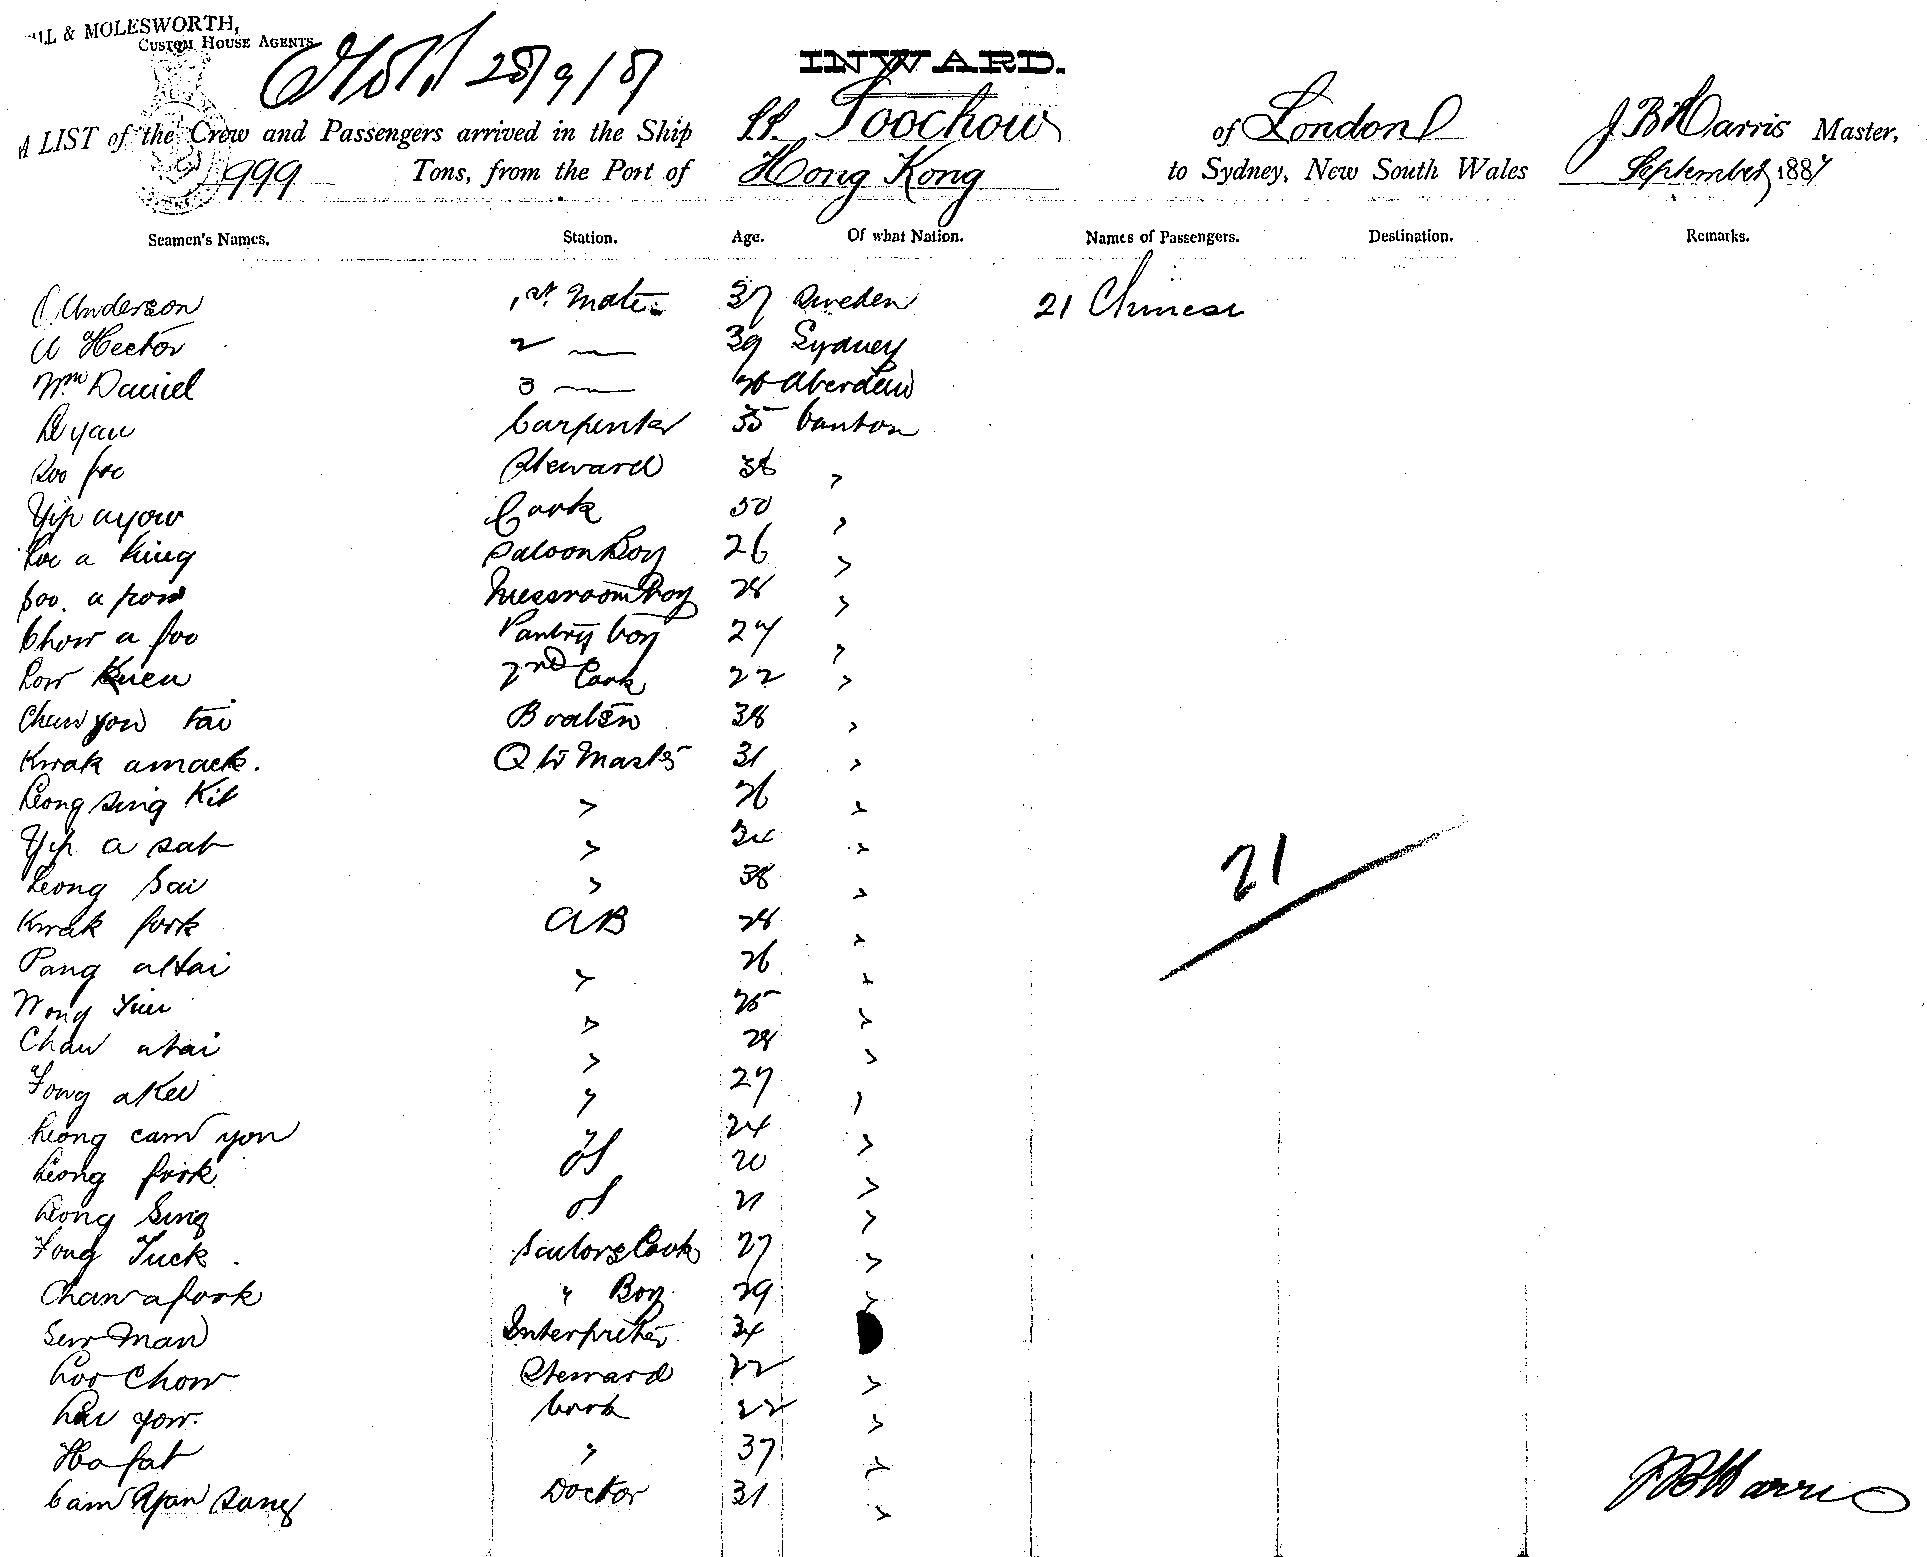 & MOLESWORTH,
CUSTOM HOUSE AGENTS
28/9/87
INWARD.
A LIST of the Crew and Passengers arrived in the Ship SS. Soochow of London J B Harris Master,
999 Tons, from the Port of Hong Kong to Sydney, New South Wales September 1887
Seamen's Names. Station. Age. Of what Nation. Names of Passengers. Destination. Remarks.
Anderson 1st Mate 37 Sweden 21 Chinese
A Hector 2 — 39 Sydney
Wm Daniel 3 — 26 Aberdeen
Carpenter 35 Canton
Soo foo Steward 36 "
Yip ayow Cook 30 "
Loo a King Saloon Boy 26 "
foo. a pow Messroom Boy 28 "
Chow a foo Pantry boy 27 "
Low Kuen 2nd Cook 22 "
Chun you tai Boatsn 38 "
Kwak amack. Qtr Mastr 31 "
Leong sing Kit " 26 "
Yip a sat " 34 "
Leong Sai " 38 "
Kwak fork AB 28 "
Pang altai " 26 "
Wong Yuu " 25 "
Chau atai " 28 "
Fong akee " 27 "
Leong cam you 24 "
Leong fork OS 20 "
Leong Sing OS 21 "
Fong Tuck. Sailors Cook 27 "
Chan a fork " Boy 29 "
Sew Man Interpreter 34
Loo Chow Steward 22 "
Lau yow. Cook 22 "
Ho fat " 37 "
Cam Ayan Sang Doctor 31 "
21
J B Harris